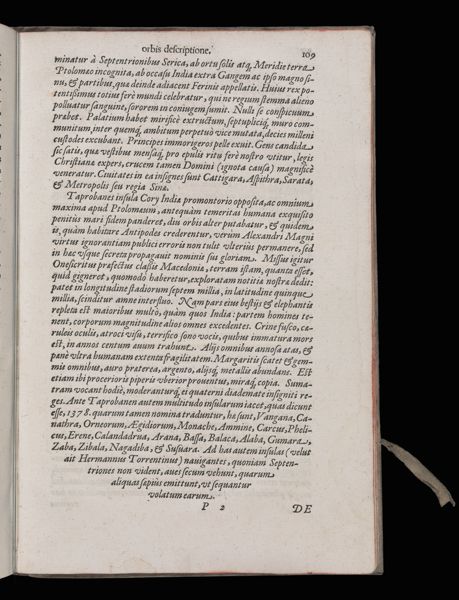 orbis descriptione. 109
minatur à Septentrionibus Serica, ab ortu solis atq, Meridie terra
Ptolomeo incognita, ab occasu India extra Gangem ac ipso magno si-
nu, & partibus, qua deinde adiacent Ferinis appellatis. Huius rex po-
tentissimus totius ferè mundi celebratur, qui ne regium stemma alieno
polluatur sanguine, sororem in coniugem sumit. Nulli se conspicuum
prabet. Palatium habet mirificè extructum, septupliciq, muro com-
munitum, inter quemq, ambitum perpetuò vice mutata, decies milleni
custodes excubant. Principes immorigeros pelle exuit. Gens candida
sic satis, qua vestibus mensaq, pro epulis ritu ferè nostro vtitur, legis
Christiana expers, crucem tamen Domini (ignota causa) magnificè
veneratur. Ciuitates in ea insignes sunt Cattigara, Aspithra, Sarata,
& Metropolis seu regia Sina.
Taprobanes insula Cory India promontorio opposita, ac omnium
maxima apud Ptolomaum, antequàm temeritas humana exquisito
penitùs mari fidem panderet, diu orbis alter putabatur, & quidem
is, quàm habitare Antipodes crederentur, verùm Alexandri Magni
virtus ignorantiam publici erroris non tulit vlteriùs permanere, sed
in hec vsque secreta propagauit nominis sui gloriam. Missus igitur
Onesicritus prafectus classis Macedonia, terram istam, quanta esset,
quid gigneret, quomodò haberetur, exploratam notitia nostra dedit:
patet in longitudine stadiorum septem millia, in latitudine quinque
millia, scinditur amne interfluo. Nam pars eius bestijs & elephantis
repleta est maioribus multò, quàm quos India: partem homines te-
nent, corporum magnitudine alios omnes excedentes. Crine fusco, ca-
ruleis oculis, atroci visu, terrifico sono vocis, quibus immatura mors
est, in annos centum auum trahunt. Alijs omnibus annosa atas, &
panè vltra humanam extenta fragilitatem. Margaritis scatet & gem-
mis omnibus, auro praterea, argento, alijsq, metallis abundane. Est
etiam ibi procerioris piperis vberior prouentus, miraq, copia. Suma-
tram vocant hodiè, moderanturq, ei quaterni diademate insigniti re-
ges. Ante Taprobanen autem multitudo insularum iacet, quas dicunt
esse, 1378. quarum tamen nomina traduntur, he sunt, Vangana, Ca-
nathra, Orneorum, Ægidiorum, Monache, Ammine, Carcus, Pheli-
cus, Erene, Calandadrua, Arana, Bassa, Balaca, Alaba, Gumara,
Zaba, Zibala, Nagadiba, & Susuara. Ad has autem insulas (velut
ait Hermannus Torrentinus) nauigantes, quoniam Septen-
triones non vident, aues secum vehunt, quarum
aliquas sapiùs emittunt, vt sequantur
volatum earum.
P 2 DE